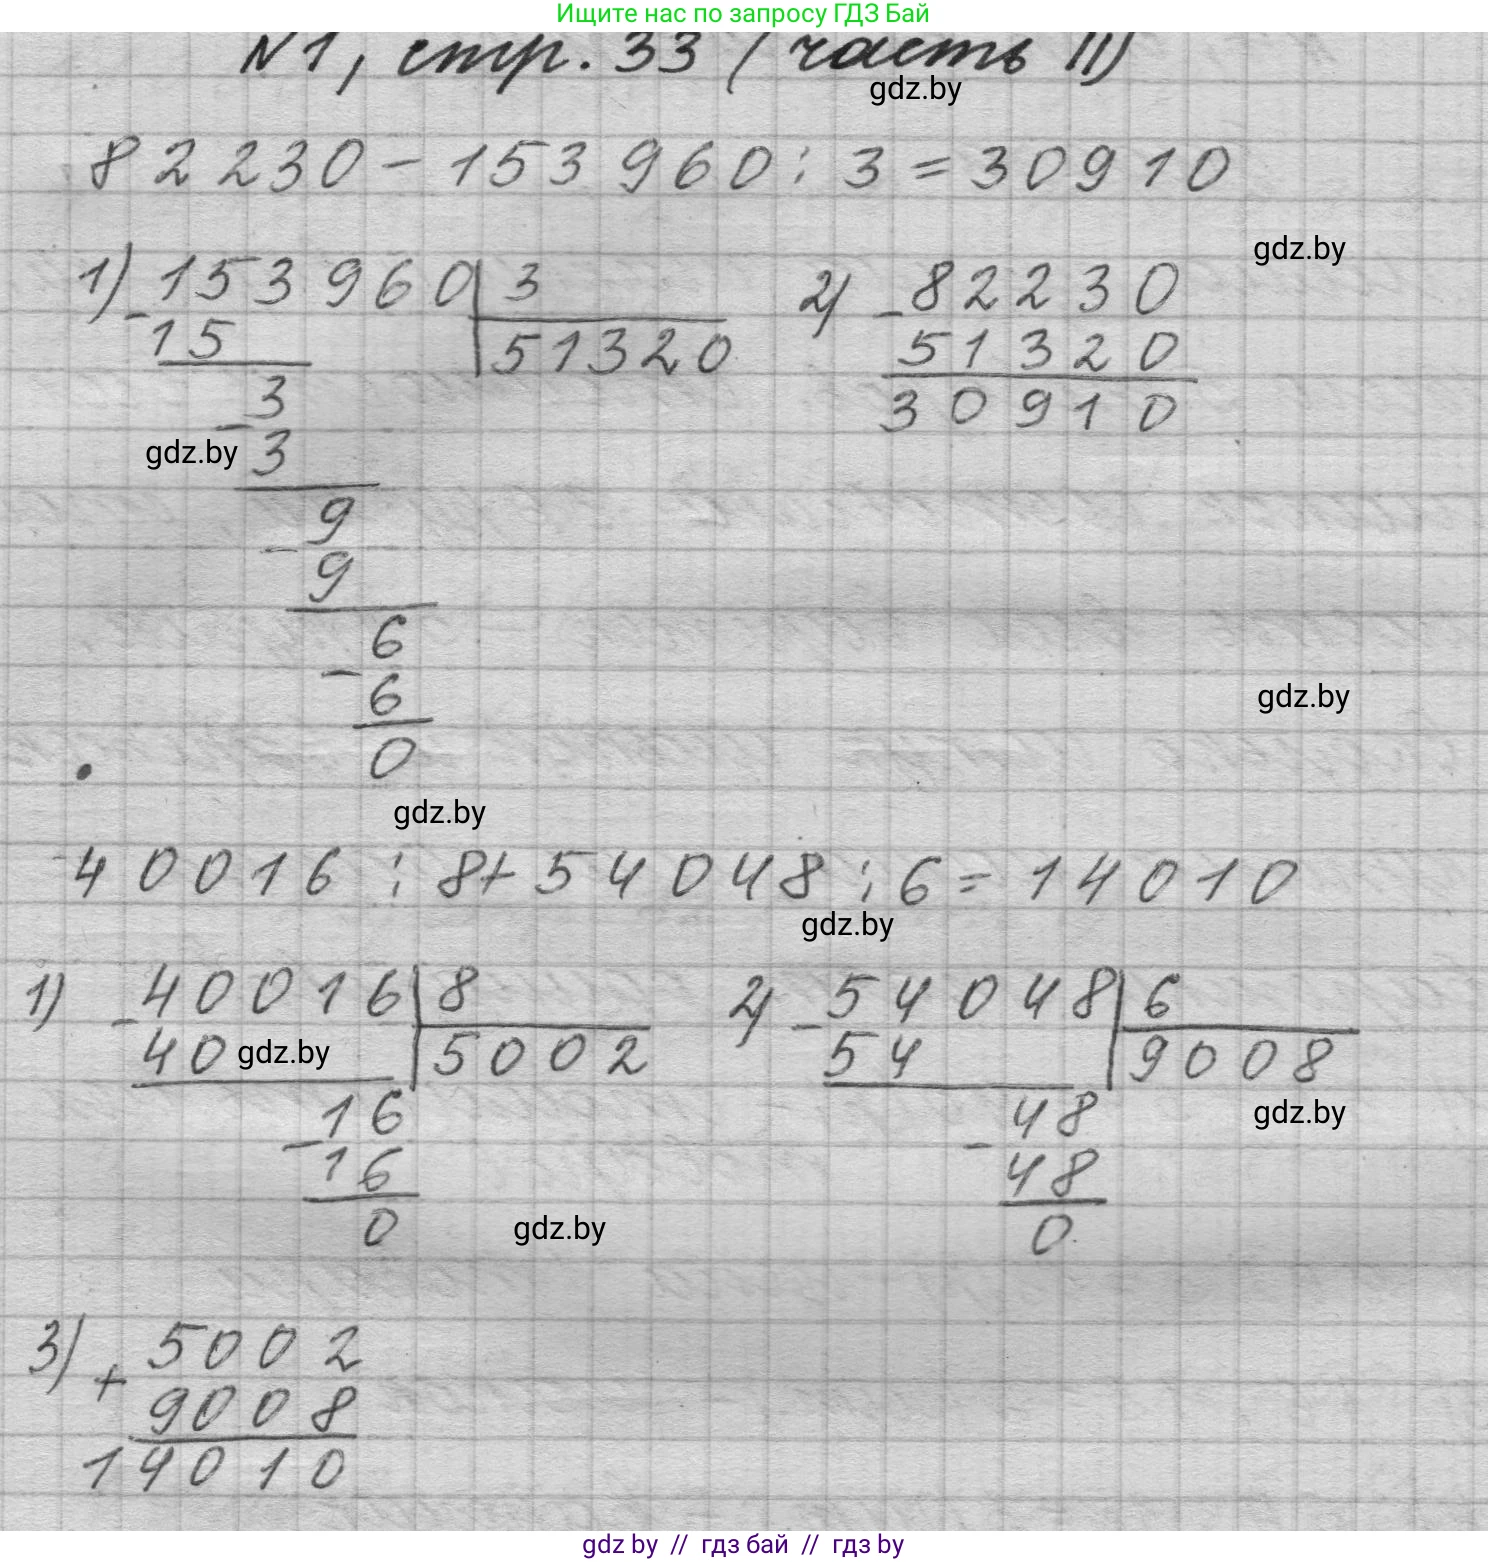 Ищите нас по запросу ГДЗ Бай
N1, стр. 33 (часть II)
gdz.by
82230 - 153960 : 3 = 30910
gdz.by
1) - 153960 | 3
15
51320
3
- 3
gdz.by
9
- 9
6
- 6
0
2) - 82230
51320
30910
gdz.by
gdz.by
40016 : 8 + 54048 : 6 = 14010
gdz.by
1) - 40016 | 8
40
5002
gdz.by
16
- 16
0
2) - 54048 | 6
54
9008
gdz.by
48
- 48
0
gdz.by
3) + 5002
9008
14010
gdz.by // гдз бай // гдз by